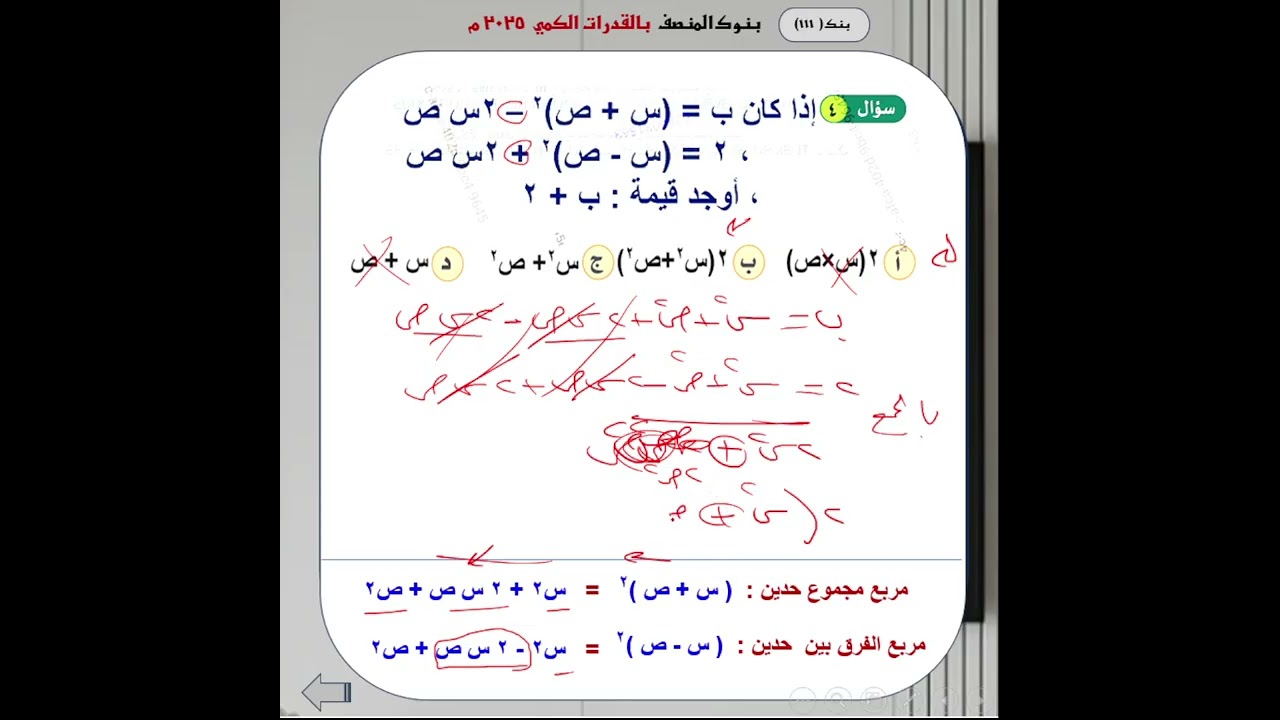 بنك (١١١) بنوك المنصف بالقدرات الكمي ٢٠٢٥ م
سؤال ٤ إذا كان ب = (س + ص)٢ – ٢س ص
، ٢ = (س - ص)٢ + ٢س ص
، أوجد قيمة : ب + ٢
أ ٢(س×ص) ب ٢(س٢+ص٢) ج س٢+ ص٢ د س + ص
ب = س٢ + ص٢ + ٢س ص - ٢س ص
٢ = س٢ + ص٢ - ٢س ص + ٢س ص
بالجمع
٢س٢ +
٢ص٢
٢(س٢ +
مربع مجموع حدين : (س + ص)٢ = س٢ + ٢ س ص + ص٢
مربع الفرق بين حدين : (س - ص)٢ = س٢ - ٢ س ص + ص٢